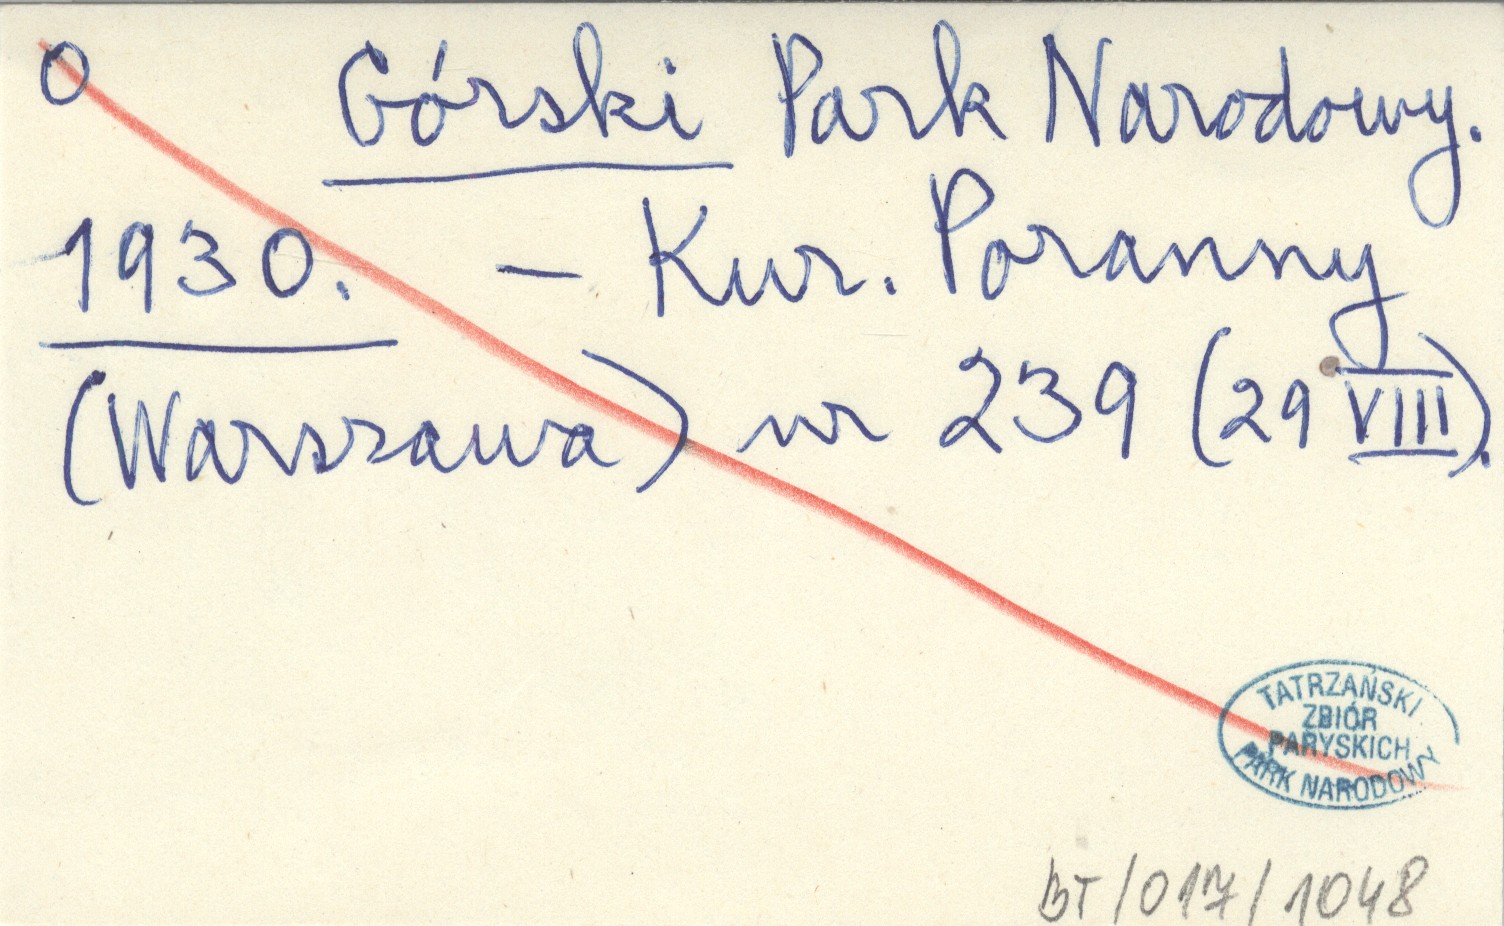 O Górski Park Narodowy.
1930. – Kur. Poranny
(Warszawa) nr 239 (29 VIII).
TATRZAŃSKI
ZBIÓR
PARYSKICH
PARK NARODOWY
BT/017/1048